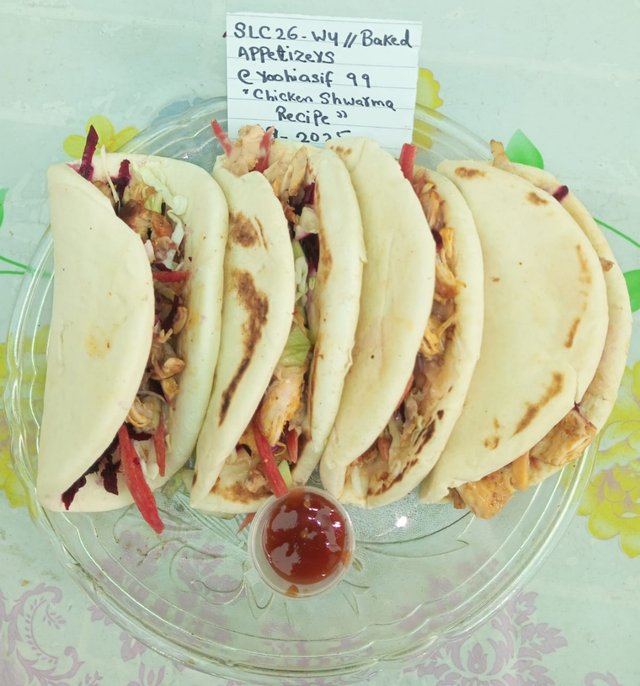 SLC26-W4//Baked
Appetizers
@yoohiasif 99
"Chicken Shwarma
Recipe"
2025